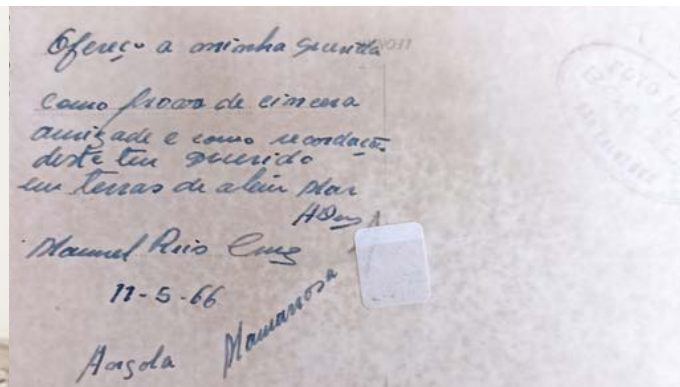 Ofereço a minha querida
como prova de cincera
amizade e como recordação
deste teu querido
em terras de alem Mar
Manuel Reis Cruz
11-5-66
Mamarrosa
Angola
FOTO